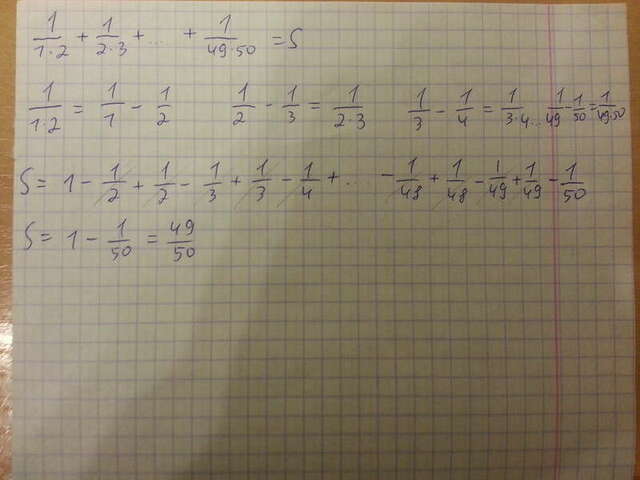 1/1·2 + 1/2·3 + ... + 1/49·50 = S
1/1·2 = 1/1 - 1/2 1/2 - 1/3 = 1/2·3 1/3 - 1/4 = 1/3·4 ... 1/49 - 1/50 = 1/49·50
S = 1 - 1/2 + 1/2 - 1/3 + 1/3 - 1/4 + ... - 1/48 + 1/48 - 1/49 + 1/49 - 1/50
S = 1 - 1/50 = 49/50